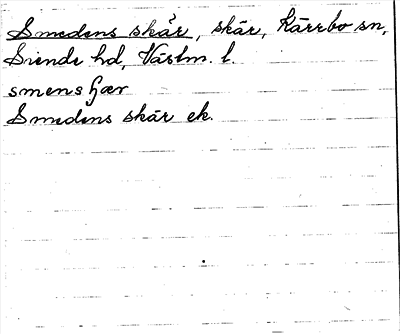 Smedens skär, skär, Kärrbo sn,
Siende hd, Västm. l.
smensʃær
Smedens skär ek.